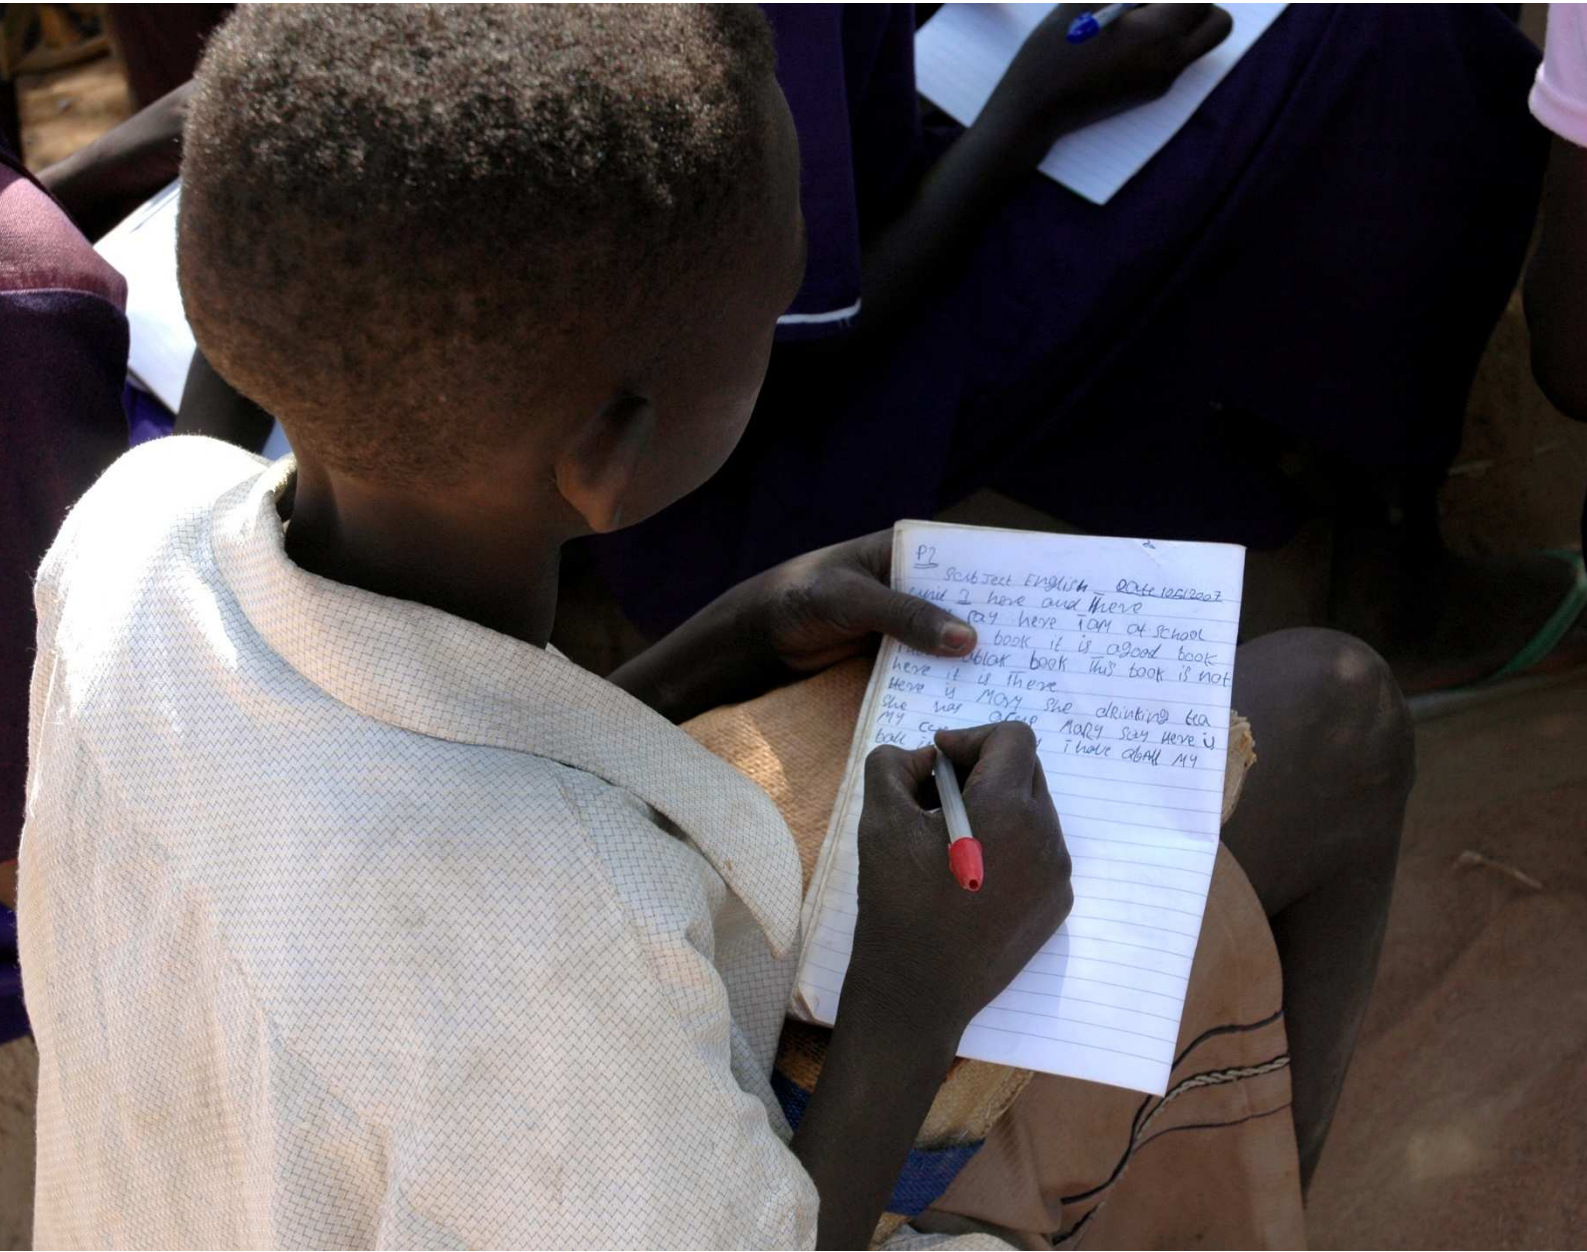 P2
Subject English Date 10/5/2007
unit 1 here and there
say here I am at school
book it is agood book
ablak book This book is not
here it is there
Here is Mary she drinking tea
she has acup Mary say Here is
My i have aball My
ball